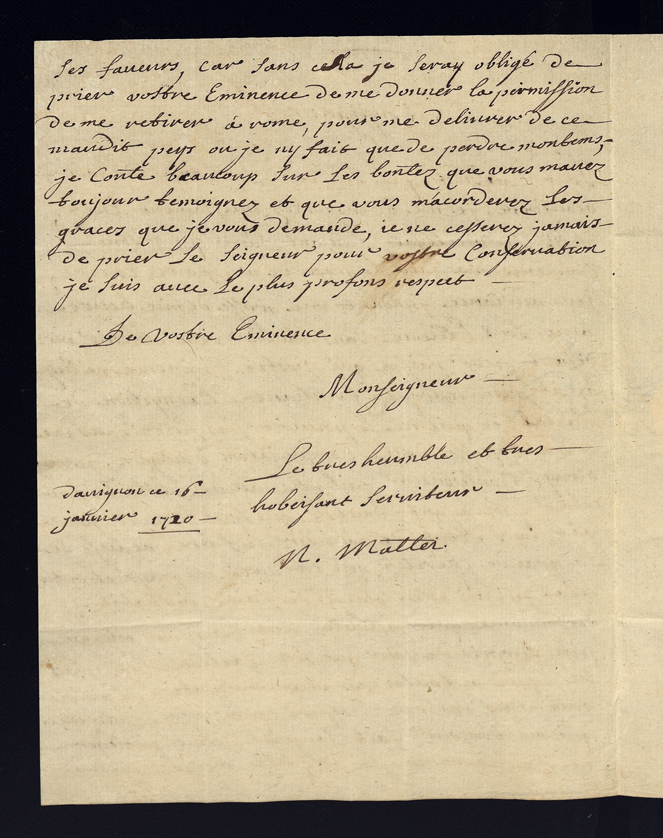 ses faveurs, car sans cella je seray obligé de
prier vostre Eminence de me donner la permission
de me retirer á rome, pour me delivrer de ce
maudit peys ou je ny fait que de perdre mon tems
je Conte beaucoup sur les bontez que vous mavez
toujour temoignez et que vous macorderez les
graces que je vous demande, ie ne cesserez jamais
de prier le seigneur pour vostre Conservation
je suis avec le plus profons respect
De vostre Eminence
Monseigneur
Le tres heumble et tres
hobeisant serviteur
davignon ce 16
janvier 1720
N. Matter